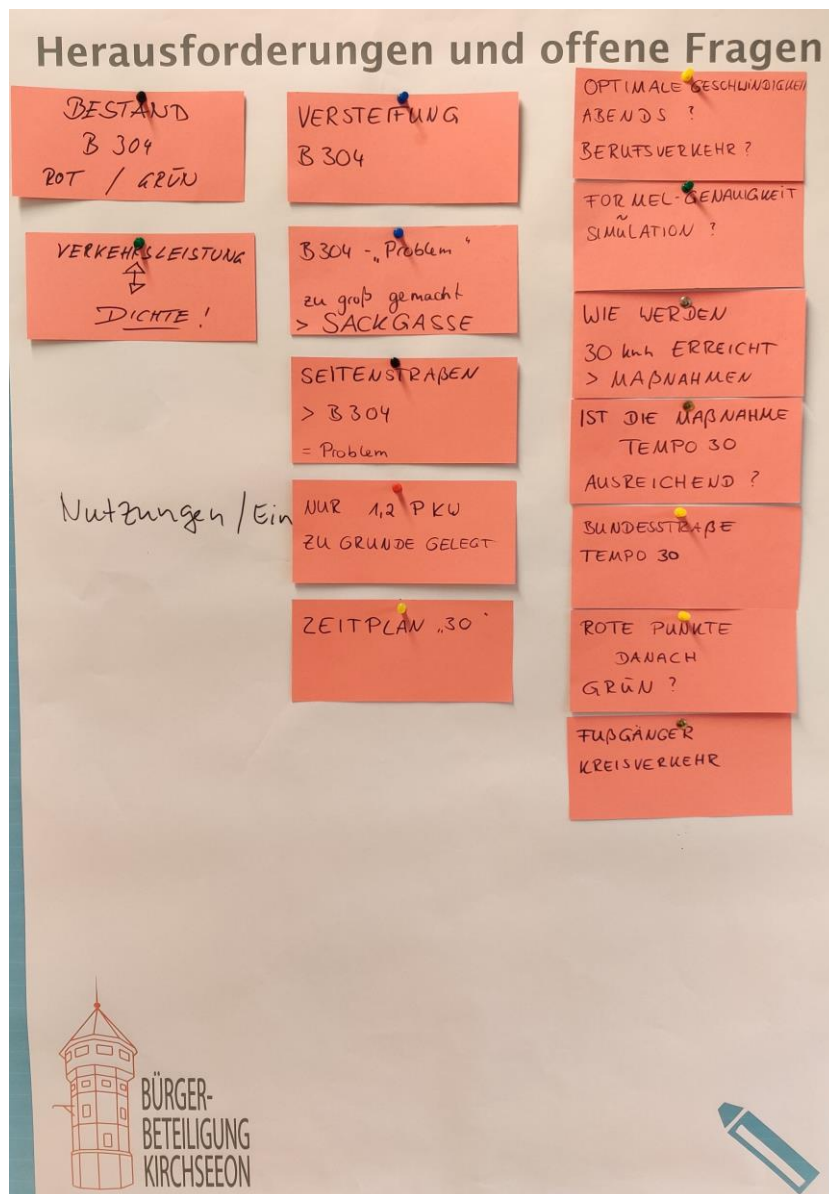 Herausforderungen und offene Fragen
BESTAND
B 304
ROT / GRÜN
VERKEHRSLEISTUNG
DICHTE !
Nutzungen / Ein
VERSTEIFUNG
B 304
B304 - „Problem“
zu groß gemacht
> SACKGASSE
SEITENSTRAßEN
> B304
= Problem
NUR 1,2 PKW
ZU GRUNDE GELEGT
ZEITPLAN „30“
OPTIMALE GESCHWINDIGKEIT
ABENDS ?
BERUFSVERKEHR ?
FORMEL-GENAUIGKEIT
~
SIMULATION ?
WIE WERDEN
30 kmh ERREICHT
> MAßNAHMEN
IST DIE MAßNAHME
TEMPO 30
AUSREICHEND ?
BUNDESSTRAßE
TEMPO 30
ROTE PUNKTE
DANACH
GRÜN ?
FUßGÄNGER
KREISVERKEHR
BÜRGER-
BETEILIGUNG
KIRCHSEEON